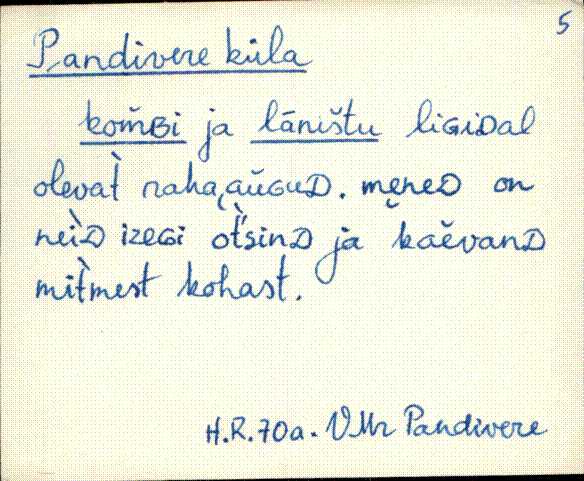 5
Pandivere küla
kom̆ʙi ja lāništu ligiᴅal
olevat̀ raha,aŭguᴅ. mĕneᴅ on
neìᴅ izegi ot̀'sinᴅ ja kaĕvanᴅ
mit̀mest kohast.
H.R.70a. VMr Pandivere